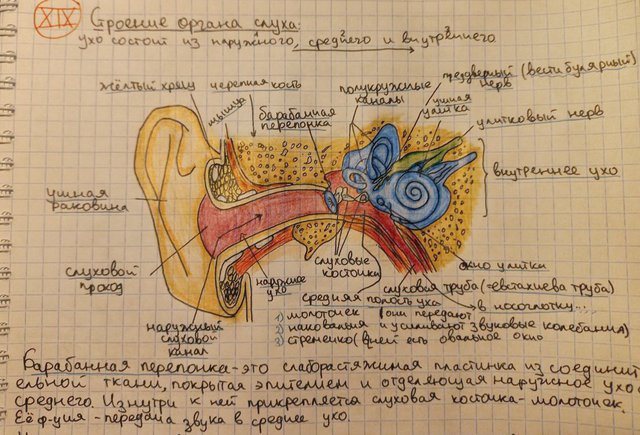 XIX Строение органа слуха:
ухо состоит из наружного, среднего и внутреннего.
жёлтый хрящ
черепная кость
мышца
барабанная перепонка
полукружные каналы
преддверный (вестибулярный) нерв
ушная улитка
улитковый нерв
внутреннее ухо
ушная раковина
слуховой проход
наружный слуховой канал
наружное ухо
слуховые косточки
окно улитки
слуховая труба (евстахиева труба)
в носоглотку...
средняя полость уха
1) молоточек
2) наковальня
3) стремечко
(они передают
и усиливают звуковые колебания)
(в ней есть овальное окно
Барабанная перепонка - это слаборастяжимая пластинка из соедини
ельной ткани, покрытая эпителием и отделяющая наружное ухо
среднего. Изнутри к ней прикрепляется слуховая косточка - молоточек.
Её ф-ция - передача звука в среднее ухо.